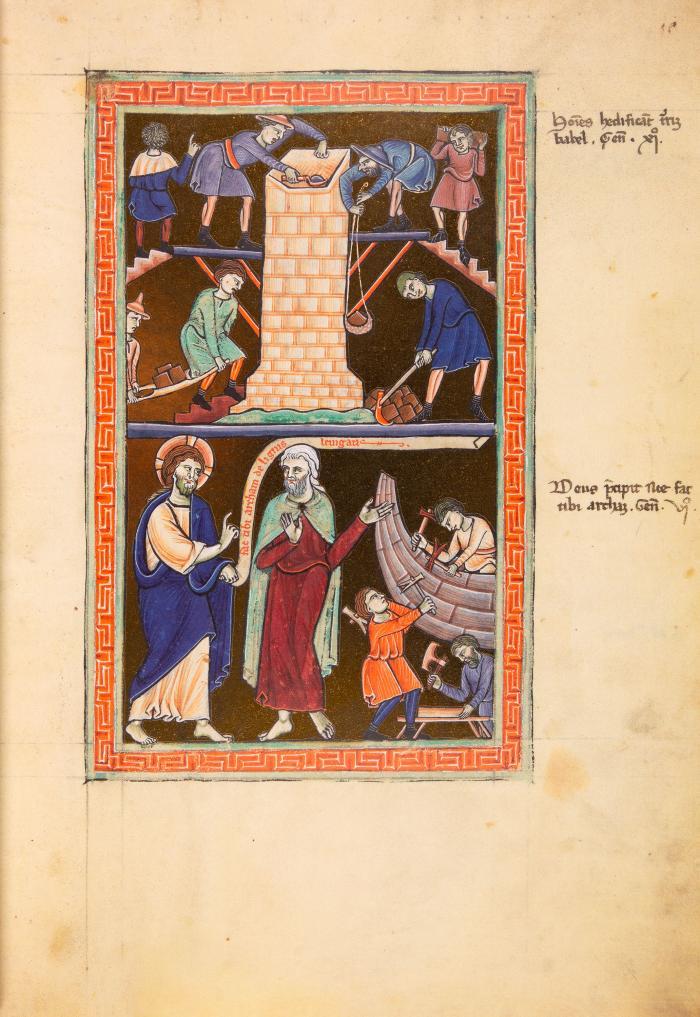 hoı̄es hedificāt t̄rız
babel. Geñ. xı̊.
fac tibi archam de lignis
leuigatis
Deus p̄cipit Noe fac
tibi archā. Geñ. vı̊.